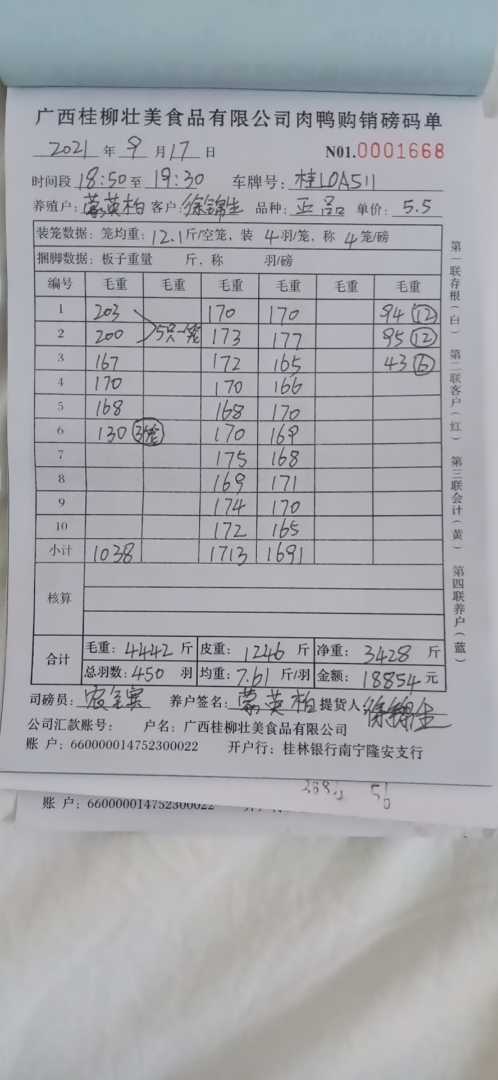 广西桂柳壮美食品有限公司肉鸭购销磅码单
2021 年 9 月 17 日 N01.0001668
时间段 18:50 至 19:30 车牌号: 桂L0A511
养殖户: 蒙英柏 客户: 徐锦生 品种: 正品 单价: 5.5
装笼数据: 笼均重: 12.1 斤/空笼, 装 4 羽/笼, 称 4 笼/磅
捆脚数据: 板子重量 斤, 称 羽/磅
编号 毛重 毛重 毛重 毛重 毛重 毛重
1 203 170 170 94 12
2 200 5只一笼 173 177 95 12
3 167 172 165 43 6
4 170 170 166
5 168 168 170
6 130 3笼 170 169
7 175 168
8 169 171
9 174 170
10 172 165
小计 1038 1713 1691
核算
合计
毛重: 4442 斤 皮重: 1246 斤 净重: 3428 斤
总羽数: 450 羽 均重: 7.61 斤/羽 金额: 18854 元
司磅员: 养户签名: 蒙英柏 提货人: 徐锦生
公司汇款账号: 户名: 广西桂柳壮美食品有限公司
账 户: 660000014752300022 开户行: 桂林银行南宁隆安支行
第一联存根(白) 第二联客户(红) 第三联会计(黄) 第四联养户(蓝)
账 户: 660000014752300022